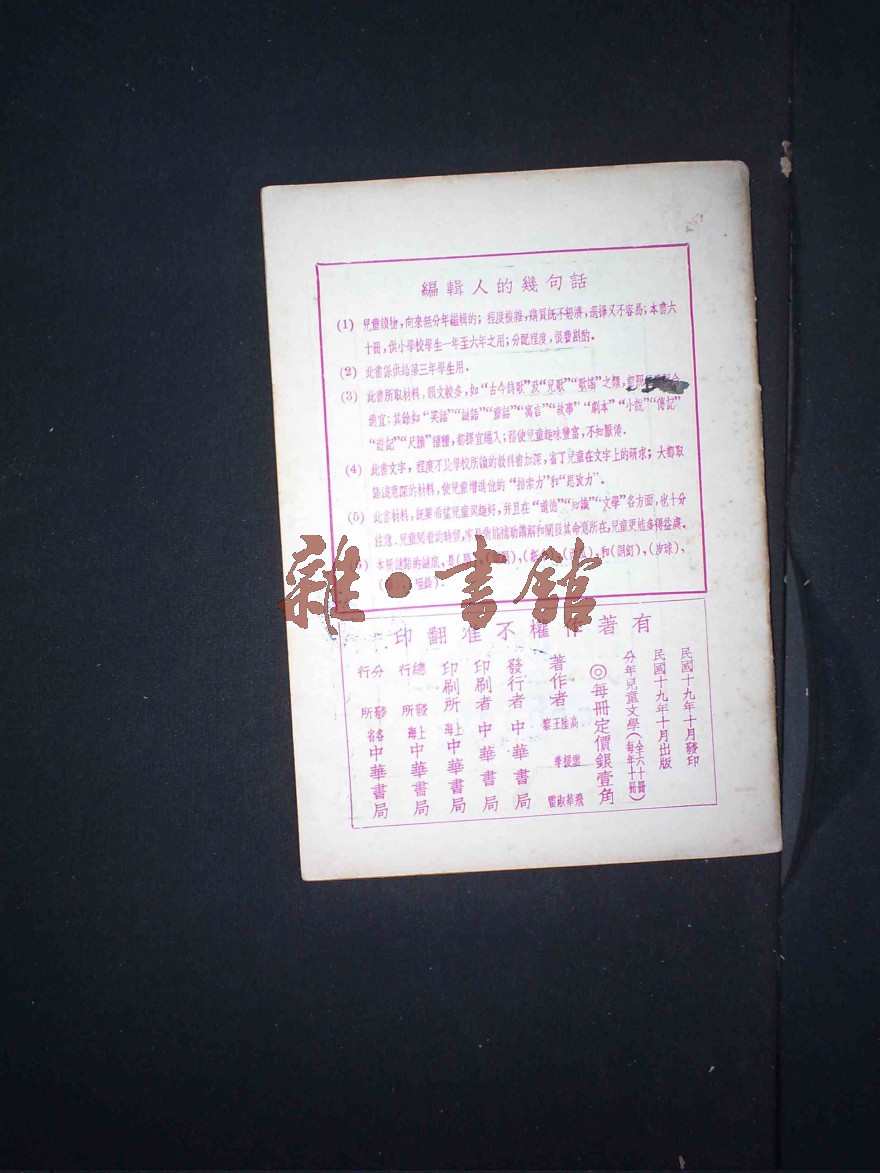 編輯人的幾句話
(1) 兒童讀物，向來無分年編輯的；程度複雜，購買既不經濟，選擇又不容易；本書六
十冊，供小學校學生一年至六年之用；分配程度，很費斟酌．
(2) 此書係供給第三年學生用．
(3) 此書所取材料，韻文較多，如“古今詩歌”及“兒歌”“歌謠”之類，
適宜；其餘如“笑話”“謎語”“童話”“寓言”“故事”“劇本”“小說”“傳記”
“遊記”“尺牘”種種，都擇宜編入；務使兒童趣味豐富，不知厭倦．
(4) 此書文字，程度不比學校所讀的教科書加深，省了兒童在文字上的研求；大都取
語淺意深的材料，使兒童增進他的“探索力”和“思致力”．
(5) 此書材料，既要希望兒童興趣好，并且在“道德”“知識”“文學”各方面，也十分
注意．兒童閱看的時候，補助講解和闡發其命意所在，兒童更能多得益處．
本冊謎語的謎底，是 和(銅釘)，(皮球)，
雜·書館
有著作權不准翻印
民國十九年十月發印
民國十九年十月出版
分年兒童文學（全六十冊 每年十冊）
◎每冊定價銀壹角
著作者 黎季
發行者 中華書局
印刷者 中華書局
印刷所 上海中華書局
總發行所 上海中華書局
分發行所 各省中華書局